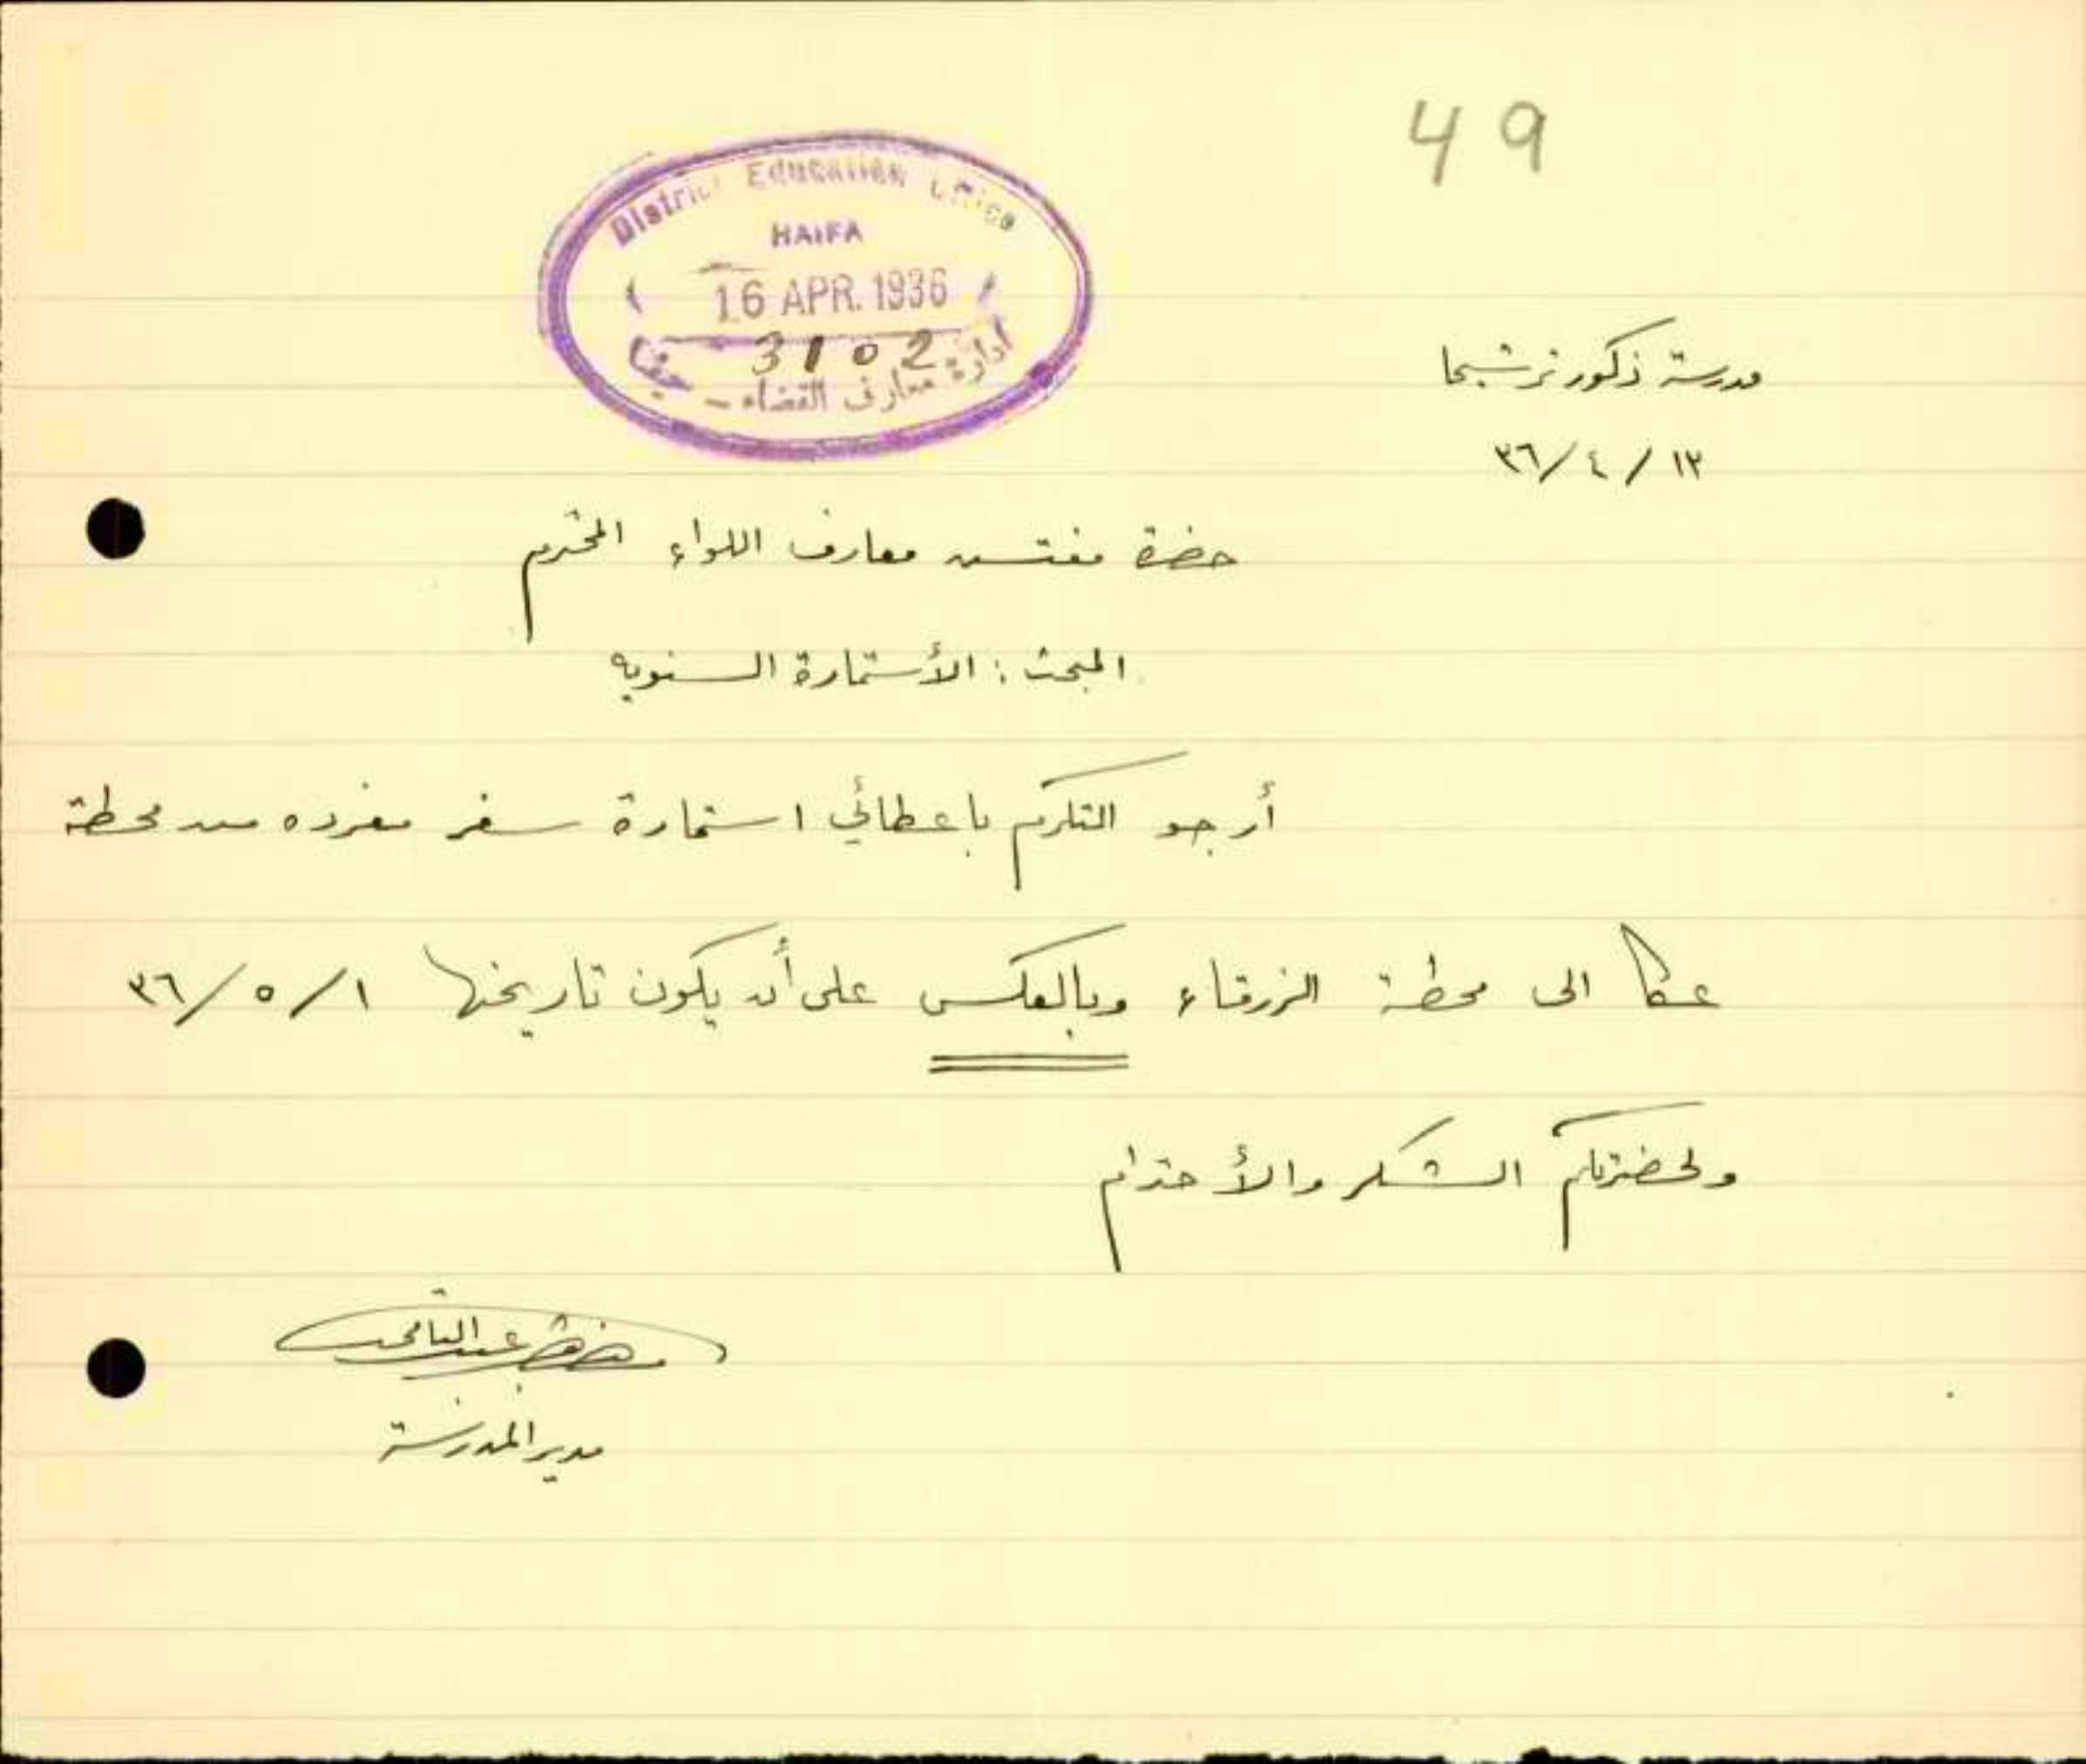 49
District Education Office
HAIFA
16 APR. 1936
3102
ادارة معارف القضاء - حيفا
مدرسة ذكور ترشيحا
١٣ / ٤ / ٣٦
حضرة مفتش معارف اللواء المحترم
المبحث : الأستمارة السنويه
أرجو التكرم باعطائي استمارة سفر مفرده من محطة
عكا الى محطة الزرقاء وبالعكس على أن يكون تاريخها ١ / ٥ / ٣٦
ولحضرتكم الشكر والأحترام
مدير المدرسة